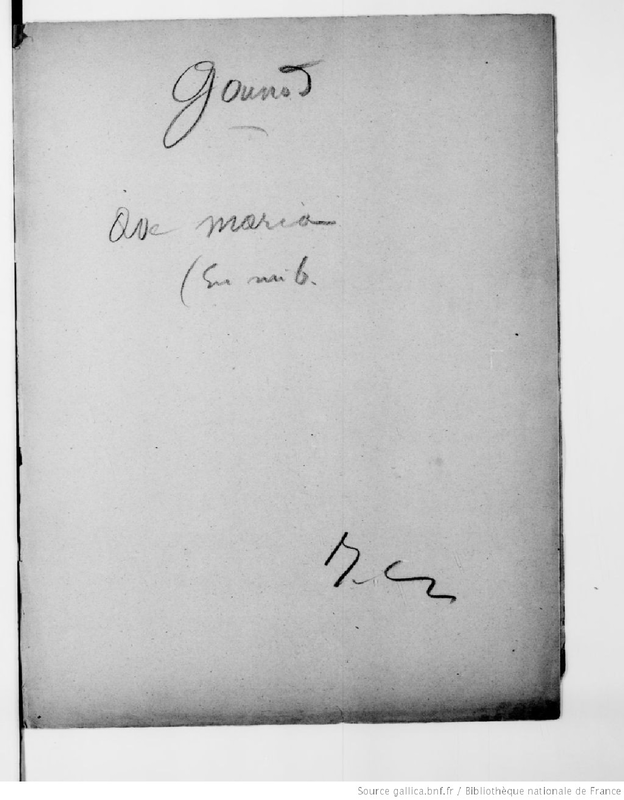 Gounod
Ave maria
(En mi b.
Source gallica.bnf.fr / Bibliothèque nationale de France